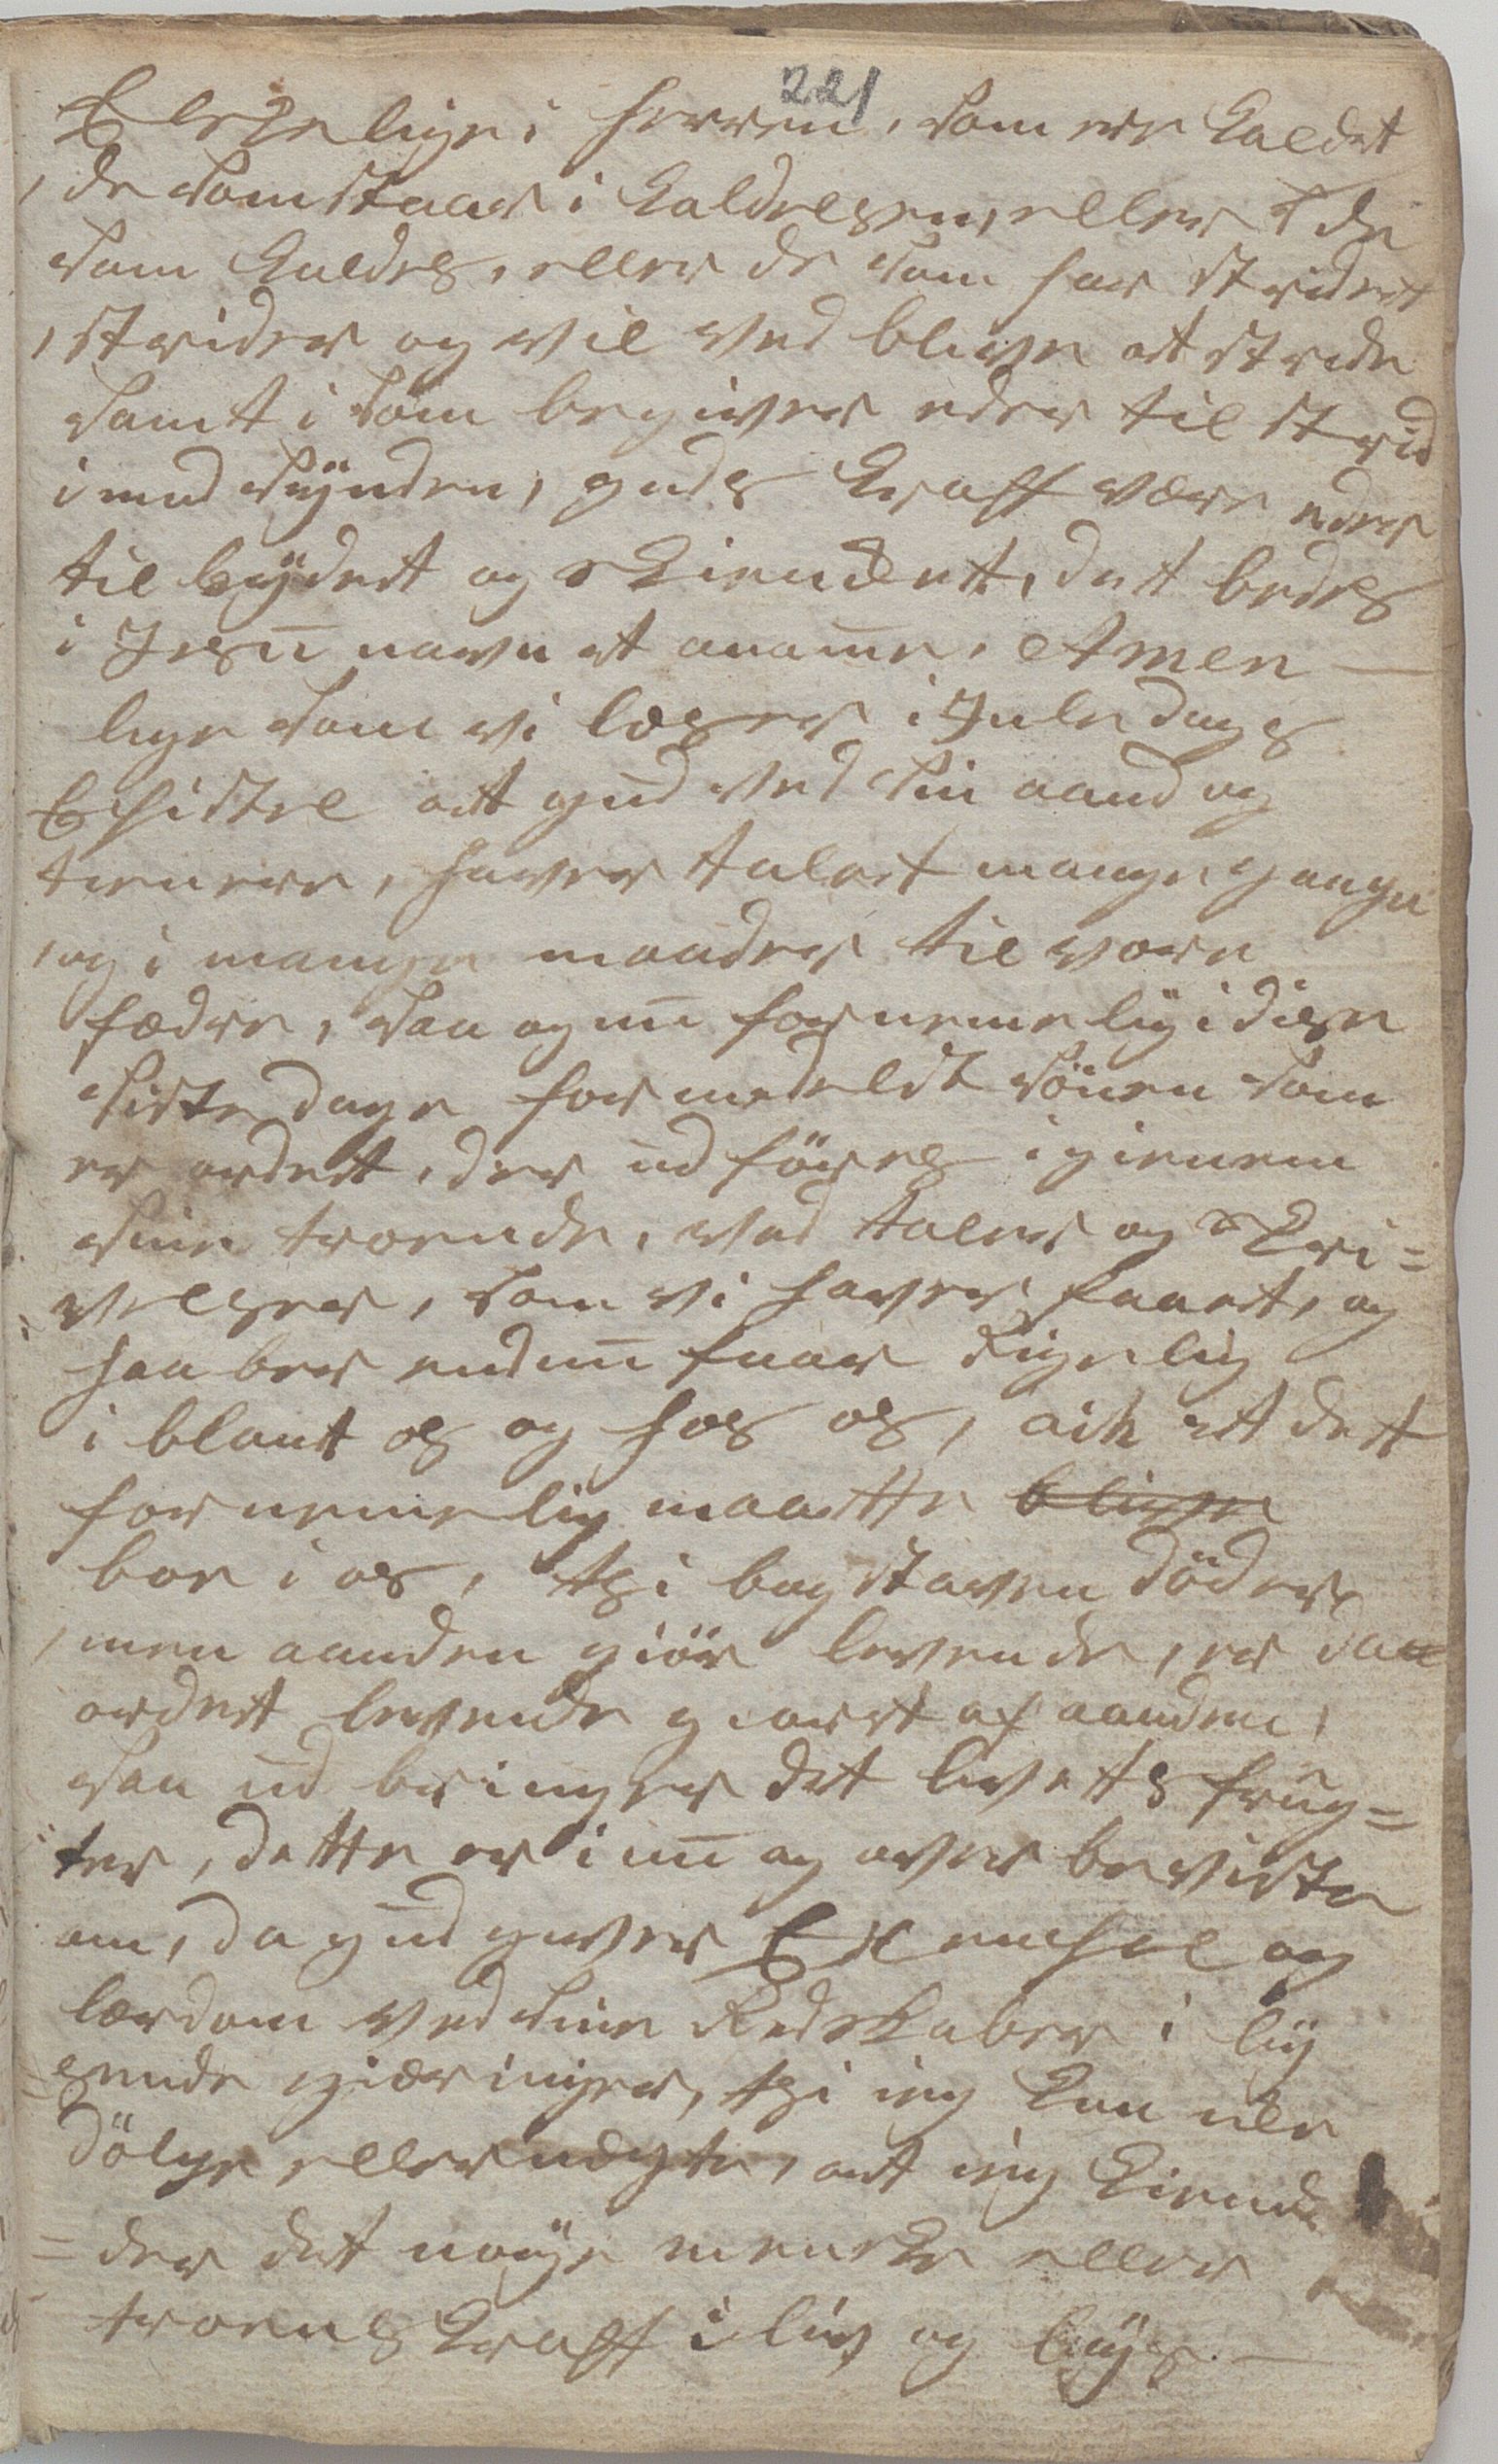 221
Elskelige i Herren, som ere Kaldet
, de som staar i Kaldelsen, eller de
som Kaldes, eller de som har stridet
, strider og vil ved blive at stride
samt i som begiver eder til strid
imod Synden, guds Kraft være eder
til bydet og skiendett, det bedes
i Jesu navn at anamme, Amen —
lige som vi læser i Juledags
Epistel att gud ved sin aand og
tienere, haver talet mange gange
, og i mange maader til vore
fædre, saa og nu fornemelig i disse
siste dage formedelst sönen som
er ordet, der udföres igienem
sine troende, ved taler og Skri=
velser, som vi haver faaet, og
haaber endnu faar rigelig
i blant os og hos os, ach at dett
fornemelig maatte blive
boe i os, thi bogstaven döder
, men aanden giör levende, er da
ordet levende giort af aanden,
saa udbringer det livets frug=
ter, dette er i nu og over beviste
om, da gud giver Exempel og
lærdom ved sine Redskaber i ly
=sende gierninger, thi ieg kan icke
dölge eller negte, att ieg kiende
=der det nöye mercke eller
troens Kraft i liv og lyys. —